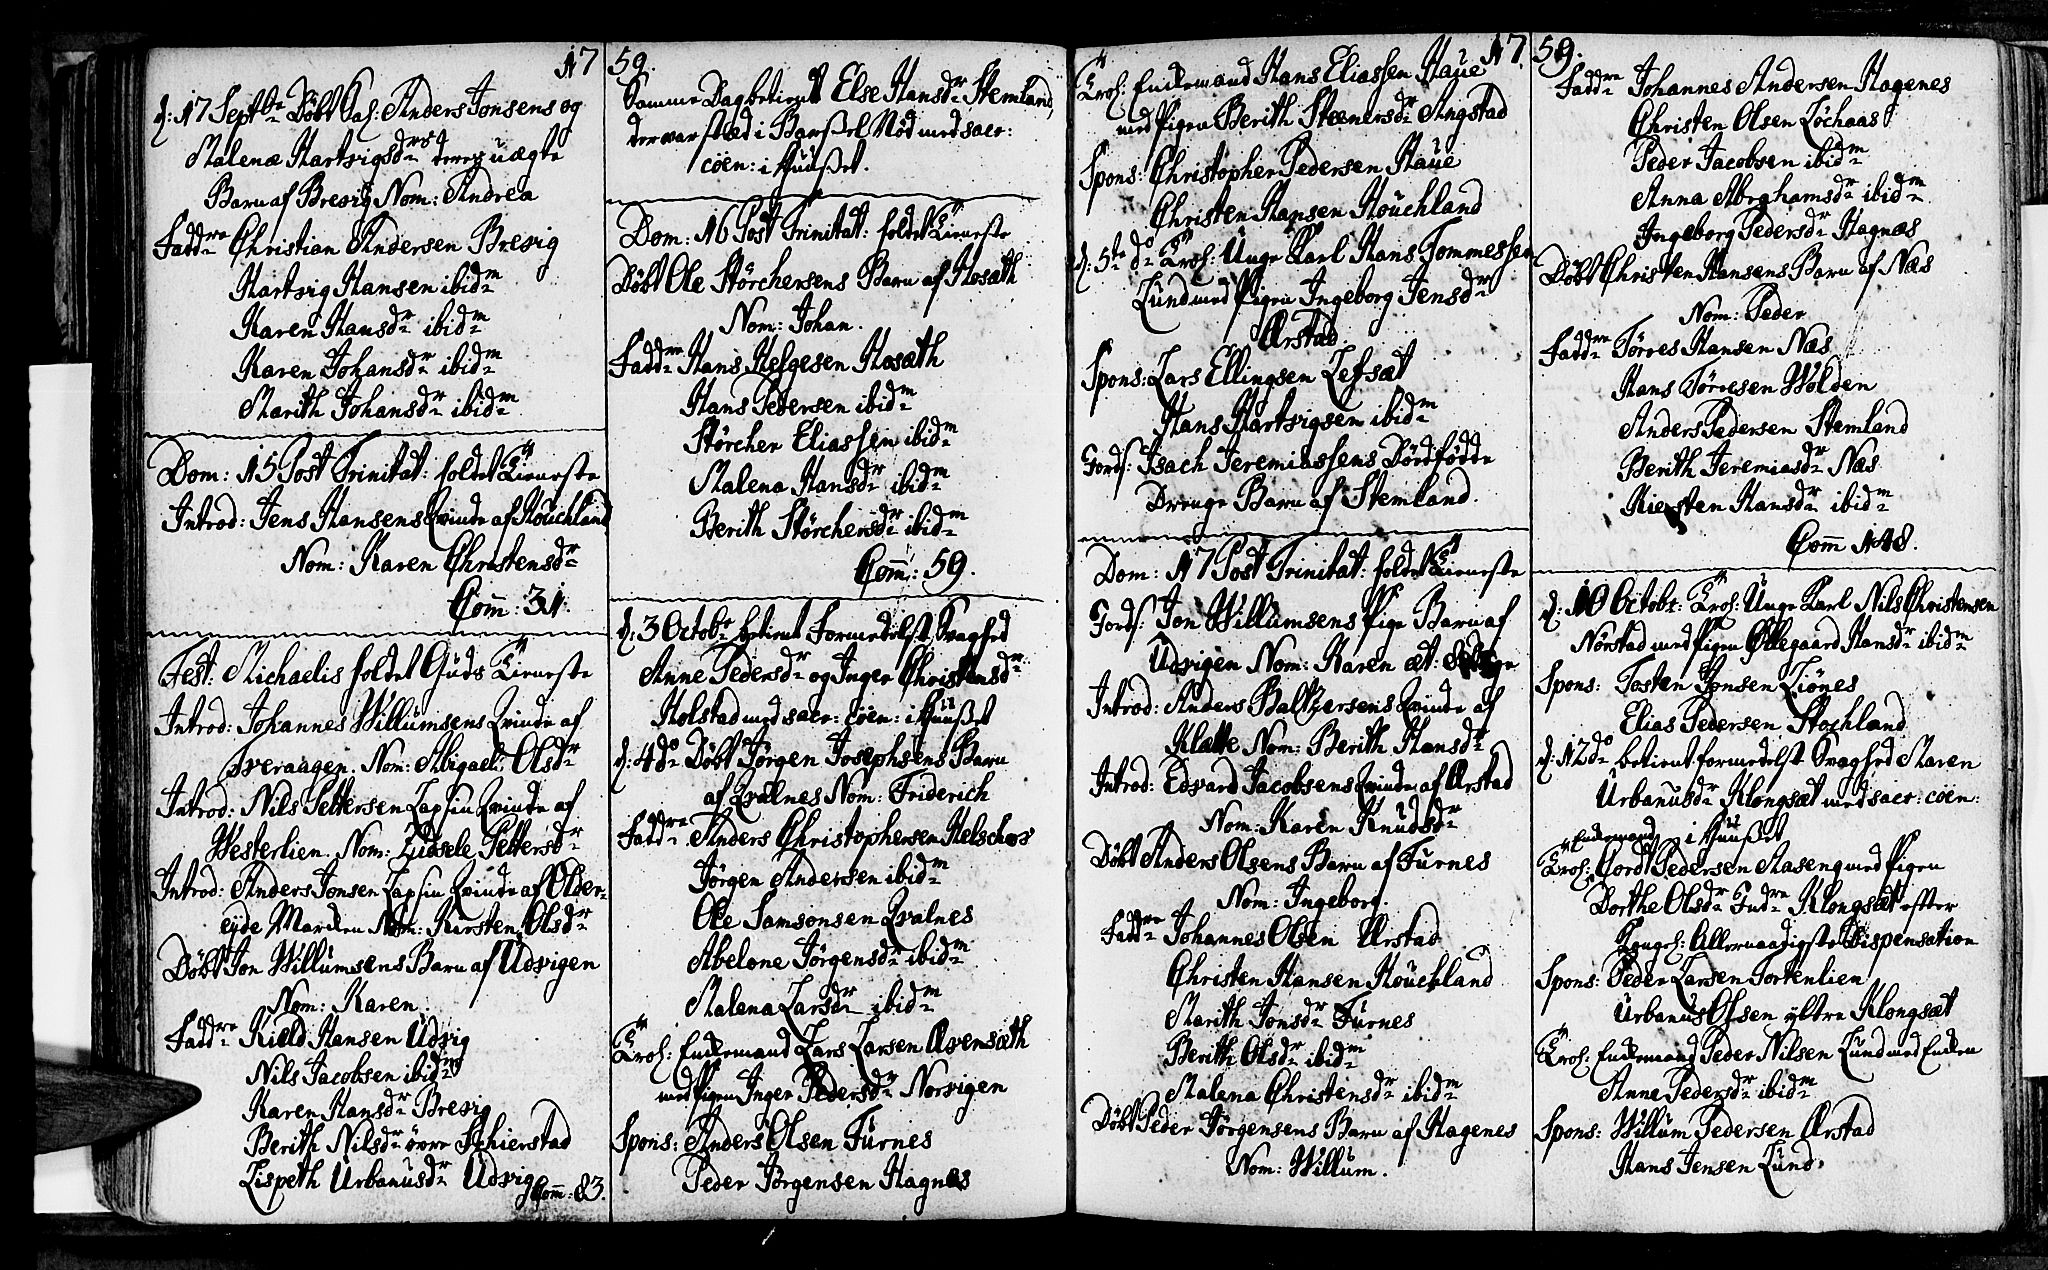 1759.
d: 17 Septbr Döbt Sal: Anders Jonsens og
Malenæ Hartvigsdrs deres uægte
Barn af Brevig Nom: Andrea
Faddre Christian Andersen Brevig
Hartvig Hansen ibidm
Karen Hansdr ibidm
Karen Johansdr ibidm
Marith Johansdr ibidm
Dom: 15 Post Trinitat: holdet Tieneste
Introd: Jens Hansens Qvinde af Houchland
Nom: Karen Christensdr
Com̄: 31.
Fest: Michaelis holdet Guds Tieneste
Introd: Johannes Willumsens Qvinde af
Tveraagen. Nom: Abigael Olsdr
Introd: Nils Pettersen Lapfin Qvinde af
Westerlien. Nom: Zidsele Pettersdr
Introd: Anders Jonsen Lapfin Qvinde af Older-
eyde Marcken Nom: Kirsten Olsdr
Döbt Jon Willumsens Barn af Udvigen
Nom: Karen
Faddre Kield Hansen Udvig
Nils Jacobsen ibidm
Karen Hansdr Brevig
Berith Nilsdr övre Schierstad
Lispeth Urbanusdr Udvig Com̄: 83.
Samme Dag betient Else Hansdr Stemland,
der var sted i Barßel Nöd med sacr:
cöen: i Huußet.
Dom: 16 Post Trinitat: holdet Tieneste
Döbt Ole Störchersens Barn af Hosæth
Nom: Johan.
Faddre Hans Helgesen Hosæth
Hans Pedersen ibidm
Störcher Eliassen ibidm
Malena Hansdr ibidm
Berith Störchersdr ibidm
Com̄: 59.
d: 3 Octobr betient formedelst Svaghed
Anne Pedersdr og Inger Christensdr
Holstad med sacr: cöen: i Huußet
d: 4do Döbt Jörgen Josephsens Barn
af Qvalnes Nom: Friderich
Faddre Anders Christophersen Helschos
Jörgen Andersen ibidm
Ole Samsonsen Qvalnes
Abelone Jörgensdr ibidm
Malena Larsdr ibidm
Troh: Enckemand Lars Larsen Avensæth
med Pigen Inger Pedersdr Norvigen
Spons: Anders Olsen Furnes
Peder Jörgensen Hagnes
1759.
Troh: Enckemand Hans Eliassen Haue
med Pigen Berith Steenersdr Angstad
Spons: Christopher Pedersen Haue
Christen Hansen Houchland
d: 5te do Troh: Unge Karl Hans Tommessen
Lund med Pigen Ingeborg Jensdr
Arstad
Spons: Lars Ellingsen Lefsæt
Hans Hartvigsen ibidm
Jords: Isach Jeremiassens Dödfödde
Drenge Barn af Stemland.
Dom: 17 Post Trinitat: holdet Tieneste
Jords: Jon Willumsens Pige Barn af
Udvigen Nom: Karen æt:
Introd: Anders Baltzersens Qvinde af
Klætte Nom: Berith Hansdr
Introd: Edvard Jacobsens Qvinde af Arstad
Nom: Karen Knudsdr
Döbt Anders Olsens Barn af Furnes
Nom: Ingeborg.
Faddre Johannes Olsen Arstad
Christen Hansen Houchland
Marith Jonsdr Furnes
Berith Olsdr ibidm
Malena Christensdr ibidm
Döbt Peder Jörgensens Barn af Hagenes
Nom: Willum.
Faddre Johannes Andersen Hagenes
Christen Olsen Löchaas
Peder Jacobsen ibidm
Anna Abrahamsdr ibidm
Ingeborg Pedersdr Hagnæs
Döbt Christen Hansens Barn af Næs
Nom: Peder
Faddre Törres Hansen Næs
Hans Törresen Wolden
Anders Pedersen Stemland
Berith Jeremiasdr Næs
Kiersten Hansdr ibidm
Com̄ 148.
d: 10 Octobr: Troh: Unge Karl Nils Christensen
Nörstad med Pigen Ollegaard Hansdr ibidm
Spons: Tosten Jonsen Liönes
Elias Pedersen Stochland
d: 12do betient formedelst Svaghed Maren
Urbanusdr Klongsæt med sacr: cöen:
i Huußet
Troh: Enckemand Cord Pedersen Aaseng med Pigen
Dorthe Olsdr Indre Klongsæt efter
Kongel: Allernaadigste Dispensation
Spons: Peder Larsen Tortenlien
Urbanus Olsen yttre Klongsæt
Troh: Enckemand Peder Nilsen Lund med Encken
Anne Pedersdr ibidm
Spons: Willum Pedersen Arstad
Hans Jensen Lund.